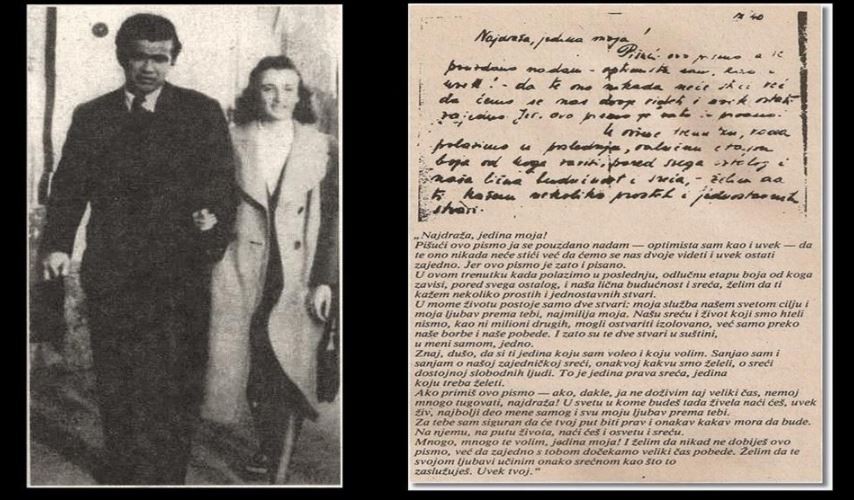 IX 40
Najdraža, jedina moja!
Pišući ovo pismo a se
pouzdano nadam – optimista sam, kao i
uvek! – da te ono nikada neće stići već
da ćemo se nas dvoje videti i uvek ostati
zajedno. Jer ovo pismo je zato i pisano.
U ovome trenutku, kada
polazimo u poslednju, odlučnu etapu
boja od koga zavisi, pored svega ostalog i
naša lična budućnost i sreća, – želim da
ti kažem nekoliko prostih i jednostavnih
stvari.
„Najdraža, jedina moja!
Pišući ovo pismo ja se pouzdano nadam — optimista sam kao i uvek — da
te ono nikada neće stići već da ćemo se nas dvoje videti i uvek ostati
zajedno. Jer ovo pismo je zato i pisano.
U ovom trenutku kada polazimo u poslednju, odlučnu etapu boja od koga
zavisi, pored svega ostalog, i naša lična budućnost i sreća, želim da ti
kažem nekoliko prostih i jednostavnih stvari.
U mome životu postoje samo dve stvari: moja služba našem svetom cilju i
moja ljubav prema tebi, najmilija moja. Našu sreću i život koji smo hteli
nismo, kao ni milioni drugih, mogli ostvariti izolovano, već samo preko
naše borbe i naše pobede. I zato su te dve stvari u suštini,
u meni samom, jedno.
Znaj, dušo, da si ti jedina koju sam voleo i koju volim. Sanjao sam i
sanjam o našoj zajedničkoj sreći, onakvoj kakvu smo želeli, o sreći
dostojnoj slobodnih ljudi. To je jedina prava sreća, jedina
koju treba želeti.
Ako primiš ovo pismo — ako, dakle, ja ne doživim taj veliki čas, nemoj
mnogo tugovati, najdraža! U svetu u kome budeš tada živela naći ćeš, uvek
živ, najbolji deo mene samog i svu moju ljubav prema tebi.
Za tebe sam siguran da će tvoj put biti prav i onakav kakav mora da bude.
Na njemu, na putu života, naći ćeš i osvetu i sreću.
Mnogo, mnogo te volim, jedina moja! I želim da nikad ne dobiješ ovo
pismo, već da zajedno s tobom dočekamo veliki čas pobede. Želim da te
svojom ljubavi učinim onako srećnom kao što to
zaslužuješ. Uvek tvoj.“